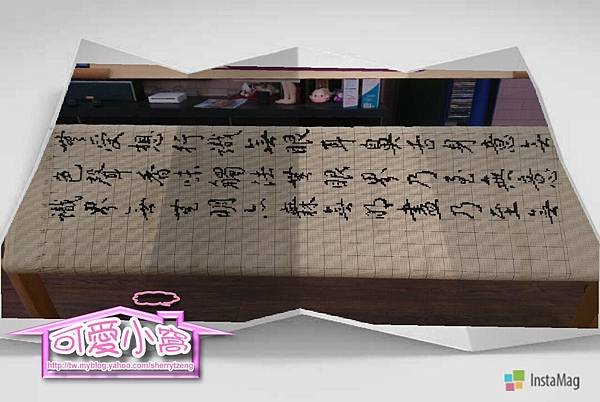 無受想行識無眼耳鼻舌身意無
色聲香味觸法無眼界乃至無意
識界無無明亦無無明盡乃至無
可愛小窩
http://tw.myblog.yahoo.com/sherrytzeng
InstaMag